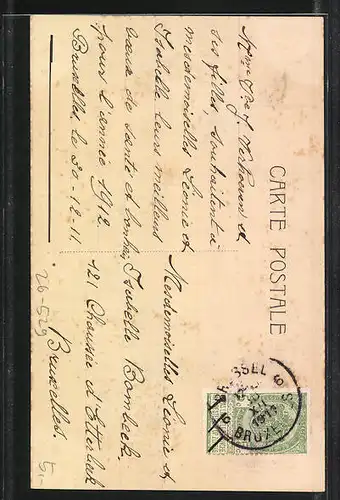 CARTE POSTALE
Mme Vve J. Verhoeven et
ses filles, souhaitent à
mesdemoiselles Léonie et
Isabelle leurs meilleurs
vœux de santé et bonheur
pour l'année 1912
Bruxelles, le 30-12-11.
Mesdemoiselles Léonie et
Isabelle Bombeek
121 Chaussée d'Etterbeek
Bruxelles.
BRUSSEL
1911
BRUXE
26-529
5,-